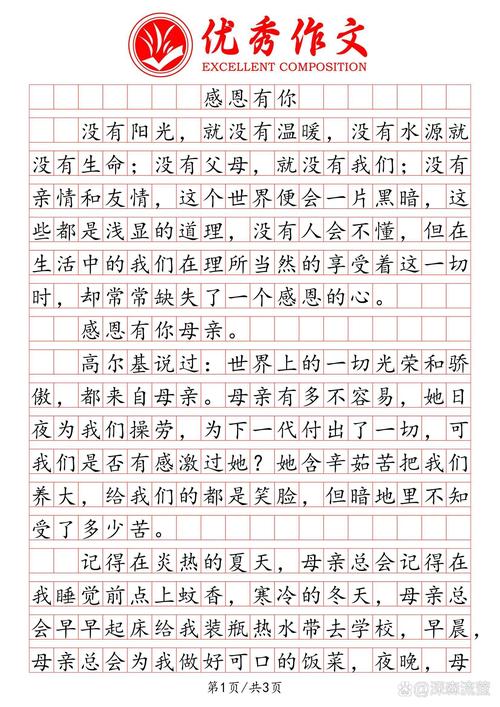 优秀作文
EXCELLENT COMPOSITION
感恩有你
没有阳光，就没有温暖，没有水源就
没有生命；没有父母，就没有我们；没有
亲情和友情，这个世界便会一片黑暗，这
些都是浅显的道理，没有人会不懂，但在
生活中的我们在理所当然的享受着这一切
时，却常常缺失了一个感恩的心。
感恩有你母亲。
高尔基说过：世界上的一切光荣和骄
傲，都来自母亲。母亲有多不容易，她日
夜为我们操劳，为下一代付出了一切，可
我们是否有感激过她？她含辛茹苦把我们
养大，给我们的都是笑脸，但暗地里不知
受了多少苦。
记得在炎热的夏天，母亲总会记得在
我睡觉前点上蚊香，寒冷的冬天，母亲总
会早早起床给我装瓶热水带去学校，早晨，
母亲总会为我做好可口的饭菜，夜晚，母
第1页/共3页